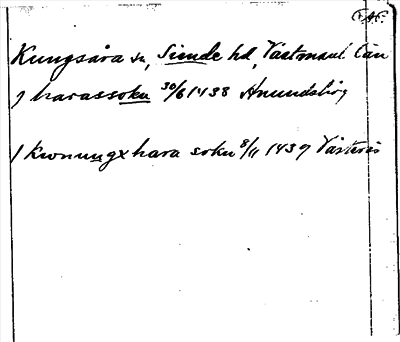 SAC.
Kungsåra sn, Siende hd, Västmanl. län
J harassoku 30/6 1438 Anundsbirg
J kwnungx hara soku 8/11 1439 Västerås